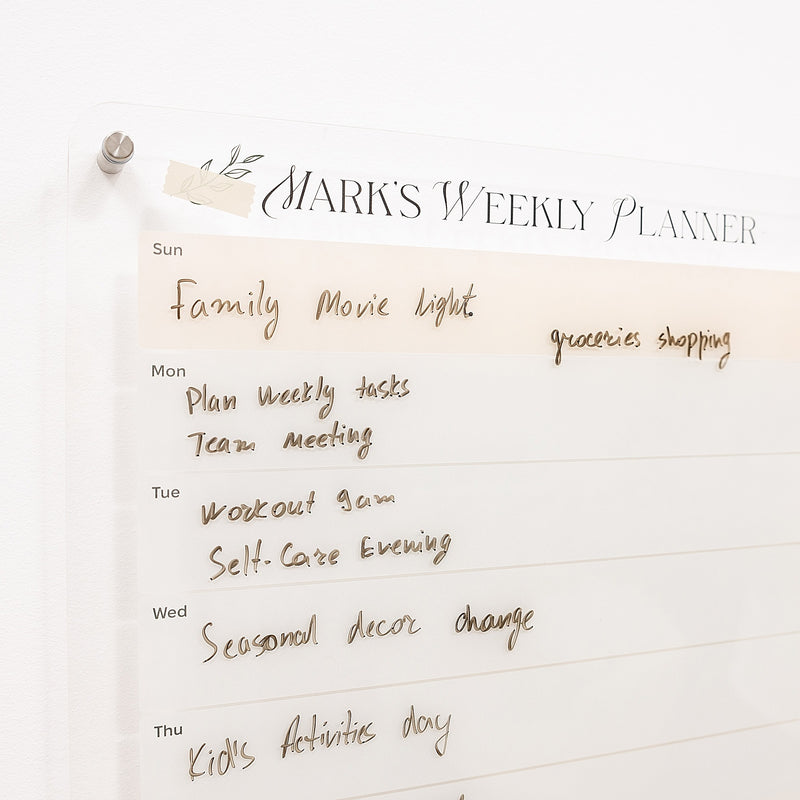 MARK'S WEEKLY PLANNER
Sun
Family Movie light.
groceries shopping
Mon
Plan weekly tasks
Team meeting
Tue
Workout 9am
Self-Care Evening
Wed
Seasonal decor change
Thu
Kid's Activities day